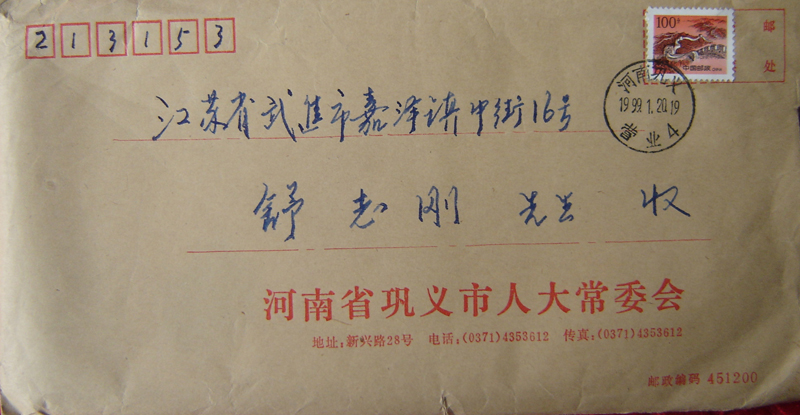 213153
100分
中国邮政
邮
处
河南巩义
1999.1.20.19
营业4
江苏省武进市嘉泽镇中街16号
舒志刚 先生 收
河南省巩义市人大常委会
地址:新兴路28号 电话:(0371)4353612 传真:(0371)4353612
邮政编码 451200